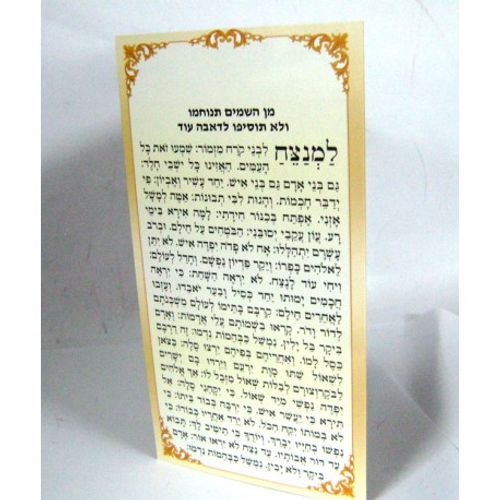 מן השמים תנוחמו
ולא תוסיפו לדאבה עוד
לַמְנַצֵּחַ לִבְנֵי קֹרַח מִזְמוֹר: שִׁמְעוּ זֹאת כָּל
הָעַמִּים. הַאֲזִינוּ כָּל יֹשְׁבֵי חָלֶד:
גַּם בְּנֵי אָדָם גַּם בְּנֵי אִישׁ. יַחַד עָשִׁיר וְאֶבְיוֹן: פִּי
יְדַבֵּר חָכְמוֹת. וְהָגוּת לִבִּי תְבוּנוֹת: אַטֶּה לְמָשָׁל
אָזְנִי. אֶפְתַּח בְּכִנּוֹר חִידָתִי: לָמָּה אִירָא בִּימֵי
רָע. עֲוֹן עֲקֵבַי יְסוּבֵּנִי: הַבֹּטְחִים עַל חֵילָם. וּבְרֹב
עָשְׁרָם יִתְהַלָּלוּ: אָח לֹא פָדֹה יִפְדֶּה אִישׁ. לֹא יִתֵּן
לֵאלֹהִים כָּפְרוֹ: וְיֵקַר פִּדְיוֹן נַפְשָׁם. וְחָדַל לְעוֹלָם:
וִיחִי עוֹד לָנֶצַח. לֹא יִרְאֶה הַשָּׁחַת: כִּי יִרְאֶה
חֲכָמִים יָמוּתוּ יַחַד כְּסִיל וָבַעַר יֹאבֵדוּ. וְעָזְבוּ
לַאֲחֵרִים חֵילָם: קִרְבָּם בָּתֵּימוֹ לְעוֹלָם מִשְׁכְּנֹתָם
לְדוֹר וָדֹר. קָרְאוּ בִשְׁמוֹתָם עֲלֵי אֲדָמוֹת: וְאָדָם
בִּיקָר בַּל יָלִין. נִמְשַׁל כַּבְּהֵמוֹת נִדְמוּ: זֶה דַרְכָּם
כֵּסֶל לָמוֹ. וְאַחֲרֵיהֶם בְּפִיהֶם יִרְצוּ סֶלָה: כַּצֹּאן
לִשְׁאוֹל שַׁתּוּ מָוֶת יִרְעֵם וַיִּרְדּוּ בָם יְשָׁרִים
לַבֹּקֶר וְצוּרָם לְבַלּוֹת שְׁאוֹל מִזְּבֻל לוֹ: אַךְ אֱלֹהִים
יִפְדֶּה נַפְשִׁי מִיַּד שְׁאוֹל. כִּי יִקָּחֵנִי סֶלָה: אַל
תִּירָא כִּי יַעֲשִׁר אִישׁ. כִּי יִרְבֶּה כְּבוֹד בֵּיתוֹ: כִּי
לֹא בְמוֹתוֹ יִקַּח הַכֹּל. לֹא יֵרֵד אַחֲרָיו כְּבוֹדוֹ: כִּי
נַפְשׁוֹ בְּחַיָּיו יְבָרֵךְ. וְיוֹדֻךָ כִּי תֵיטִיב לָךְ: תָּבוֹא
עַד דּוֹר אֲבוֹתָיו. עַד נֵצַח לֹא יִרְאוּ אוֹר: אָדָם
בִּיקָר וְלֹא יָבִין. נִמְשַׁל כַּבְּהֵמוֹת נִדְמוּ: